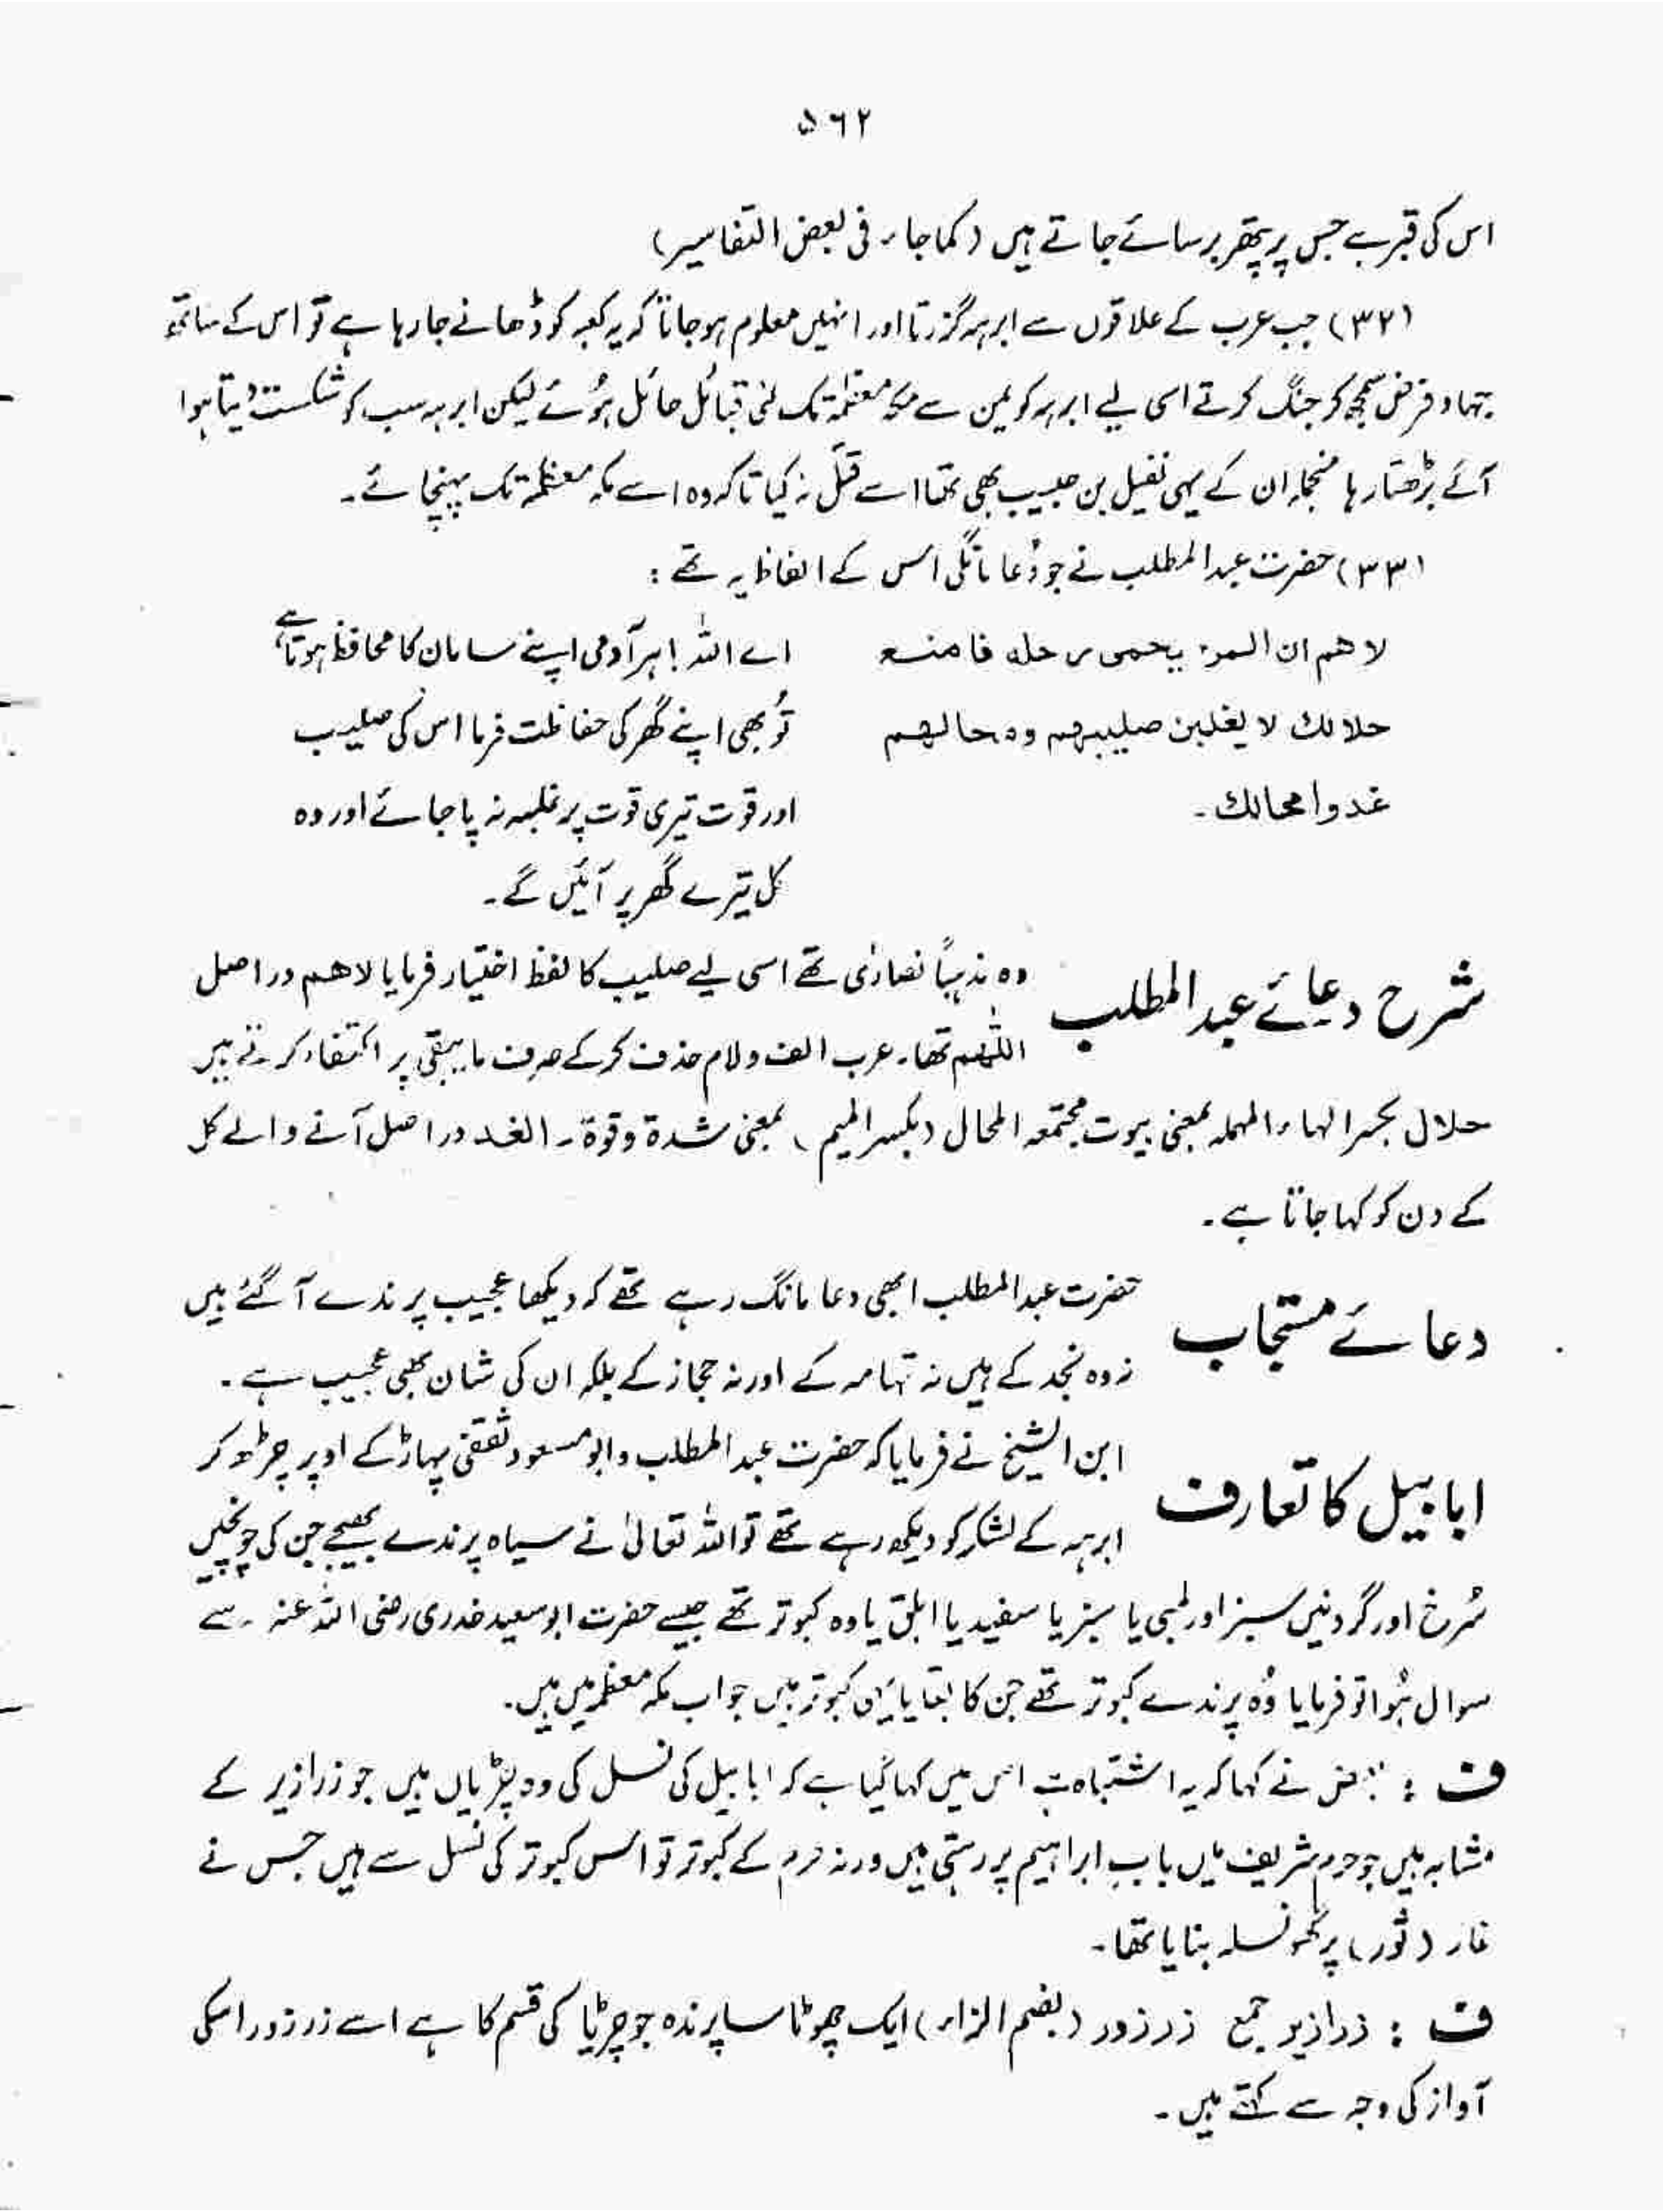 ۵۶۲
اس کی قبر ہے جس پر پتھر برسائے جاتے ہیں (کما جاء فی بعض التفاسیر)
(۳۲) جب عرب کے علاقوں سے ابرہہ گزرتا اور انہیں معلوم ہوجاتا کہ یہ کعبہ کو ڈھانے جا رہا ہے تو اس کے ساتھ
جہاد فرض سمجھ کر جنگ کرتے اسی لیے ابرہہ کو یمن سے مکہ معظمہ تک کئی قبائل حائل ہُوئے لیکن ابرہہ سب کو شکست دیتا ہوا
آگے بڑھتا رہا منجملہ ان کے یہی نفیل بن حبیب بھی تھا اسے قتل نہ کیا تاکہ وہ اسے مکہ معظمہ تک پہنچائے۔
(۳۳) حضرت عبدالمطلب نے جو دُعا مانگی اس کے الفاظ یہ تھے :
لاهم ان المرء یحمی رحله فامنع
حلالك لا یغلبن صلیبهم ومحالهم
غدوا محالك ۔
اے اللہ! ہر آدمی اپنے سامان کا محافظ ہوتا ہے
تُو بھی اپنے گھر کی حفاظت فرما اس کی صلیب
اور قوت تیری قوت پر غلبہ نہ پا جائے اور وہ
کل تیرے گھر پر آئیں گے۔
شرح دعائے عبدالمطلب
وہ مذہباً نصاریٰ تھے اسی لیے صلیب کا لفظ اختیار فرمایا لاهم در اصل
اللّٰهم تھا۔ عرب الف ولام حذف کرکے صرف مایبقی پر اکتفاء کرتے ہیں
حلال بکسر الہاء المہملہ بمعنی بیوت مجتمعہ المحال (بکسر المیم) بمعنی شدة وقوة ۔ الغد در اصل آنے والے کل
کے دن کو کہا جاتا ہے۔
دعائے مستجاب
حضرت عبدالمطلب ابھی دعا مانگ رہے تھے کہ دیکھا عجیب پرندے آگئے ہیں
نہ وہ نجد کے ہیں نہ تہامہ کے اور نہ حجاز کے بلکہ ان کی شان بھی عجیب ہے۔
ابابیل کا تعارف
ابن الشیخ نے فرمایا کہ حضرت عبدالمطلب و ابومسعود ثقفی پہاڑ کے اوپر چڑھ کر
ابرہہ کے لشکر کو دیکھ رہے تھے تو اللہ تعالیٰ نے سیاہ پرندے بھیجے جن کی چونچیں
سُرخ اور گردنیں سبز اور لمبی یا سبز یا سفید یا ابلق یا وہ کبوتر تھے جیسے حضرت ابوسعید خدری رضی اللہ عنہ سے
سوال ہُوا تو فرمایا وُہ پرندے کبوتر تھے جن کا بقایا یہی کبوتر ہیں جو اب مکہ معظمہ میں ہیں۔
ف : بعض نے کہا کہ یہ اشتباہ ہے اس میں کہا گیا ہے کہ ابابیل کی نسل کی وہ چڑیاں ہیں جو زرازیر کے
مشابہ ہیں جو حرم شریف میں بابِ ابراہیم پر رہتی ہیں ورنہ حرم کے کبوتر تو اس کبوتر کی نسل سے ہیں جس نے
غار (ثور) پر گھونسلہ بنایا تھا۔
ف : زرازیر جمع زرزور (بضم الزاء) ایک چھوٹا سا پرندہ جو چڑیا کی قسم کا ہے اسے زرزور اسکی
آواز کی وجہ سے کہتے ہیں۔